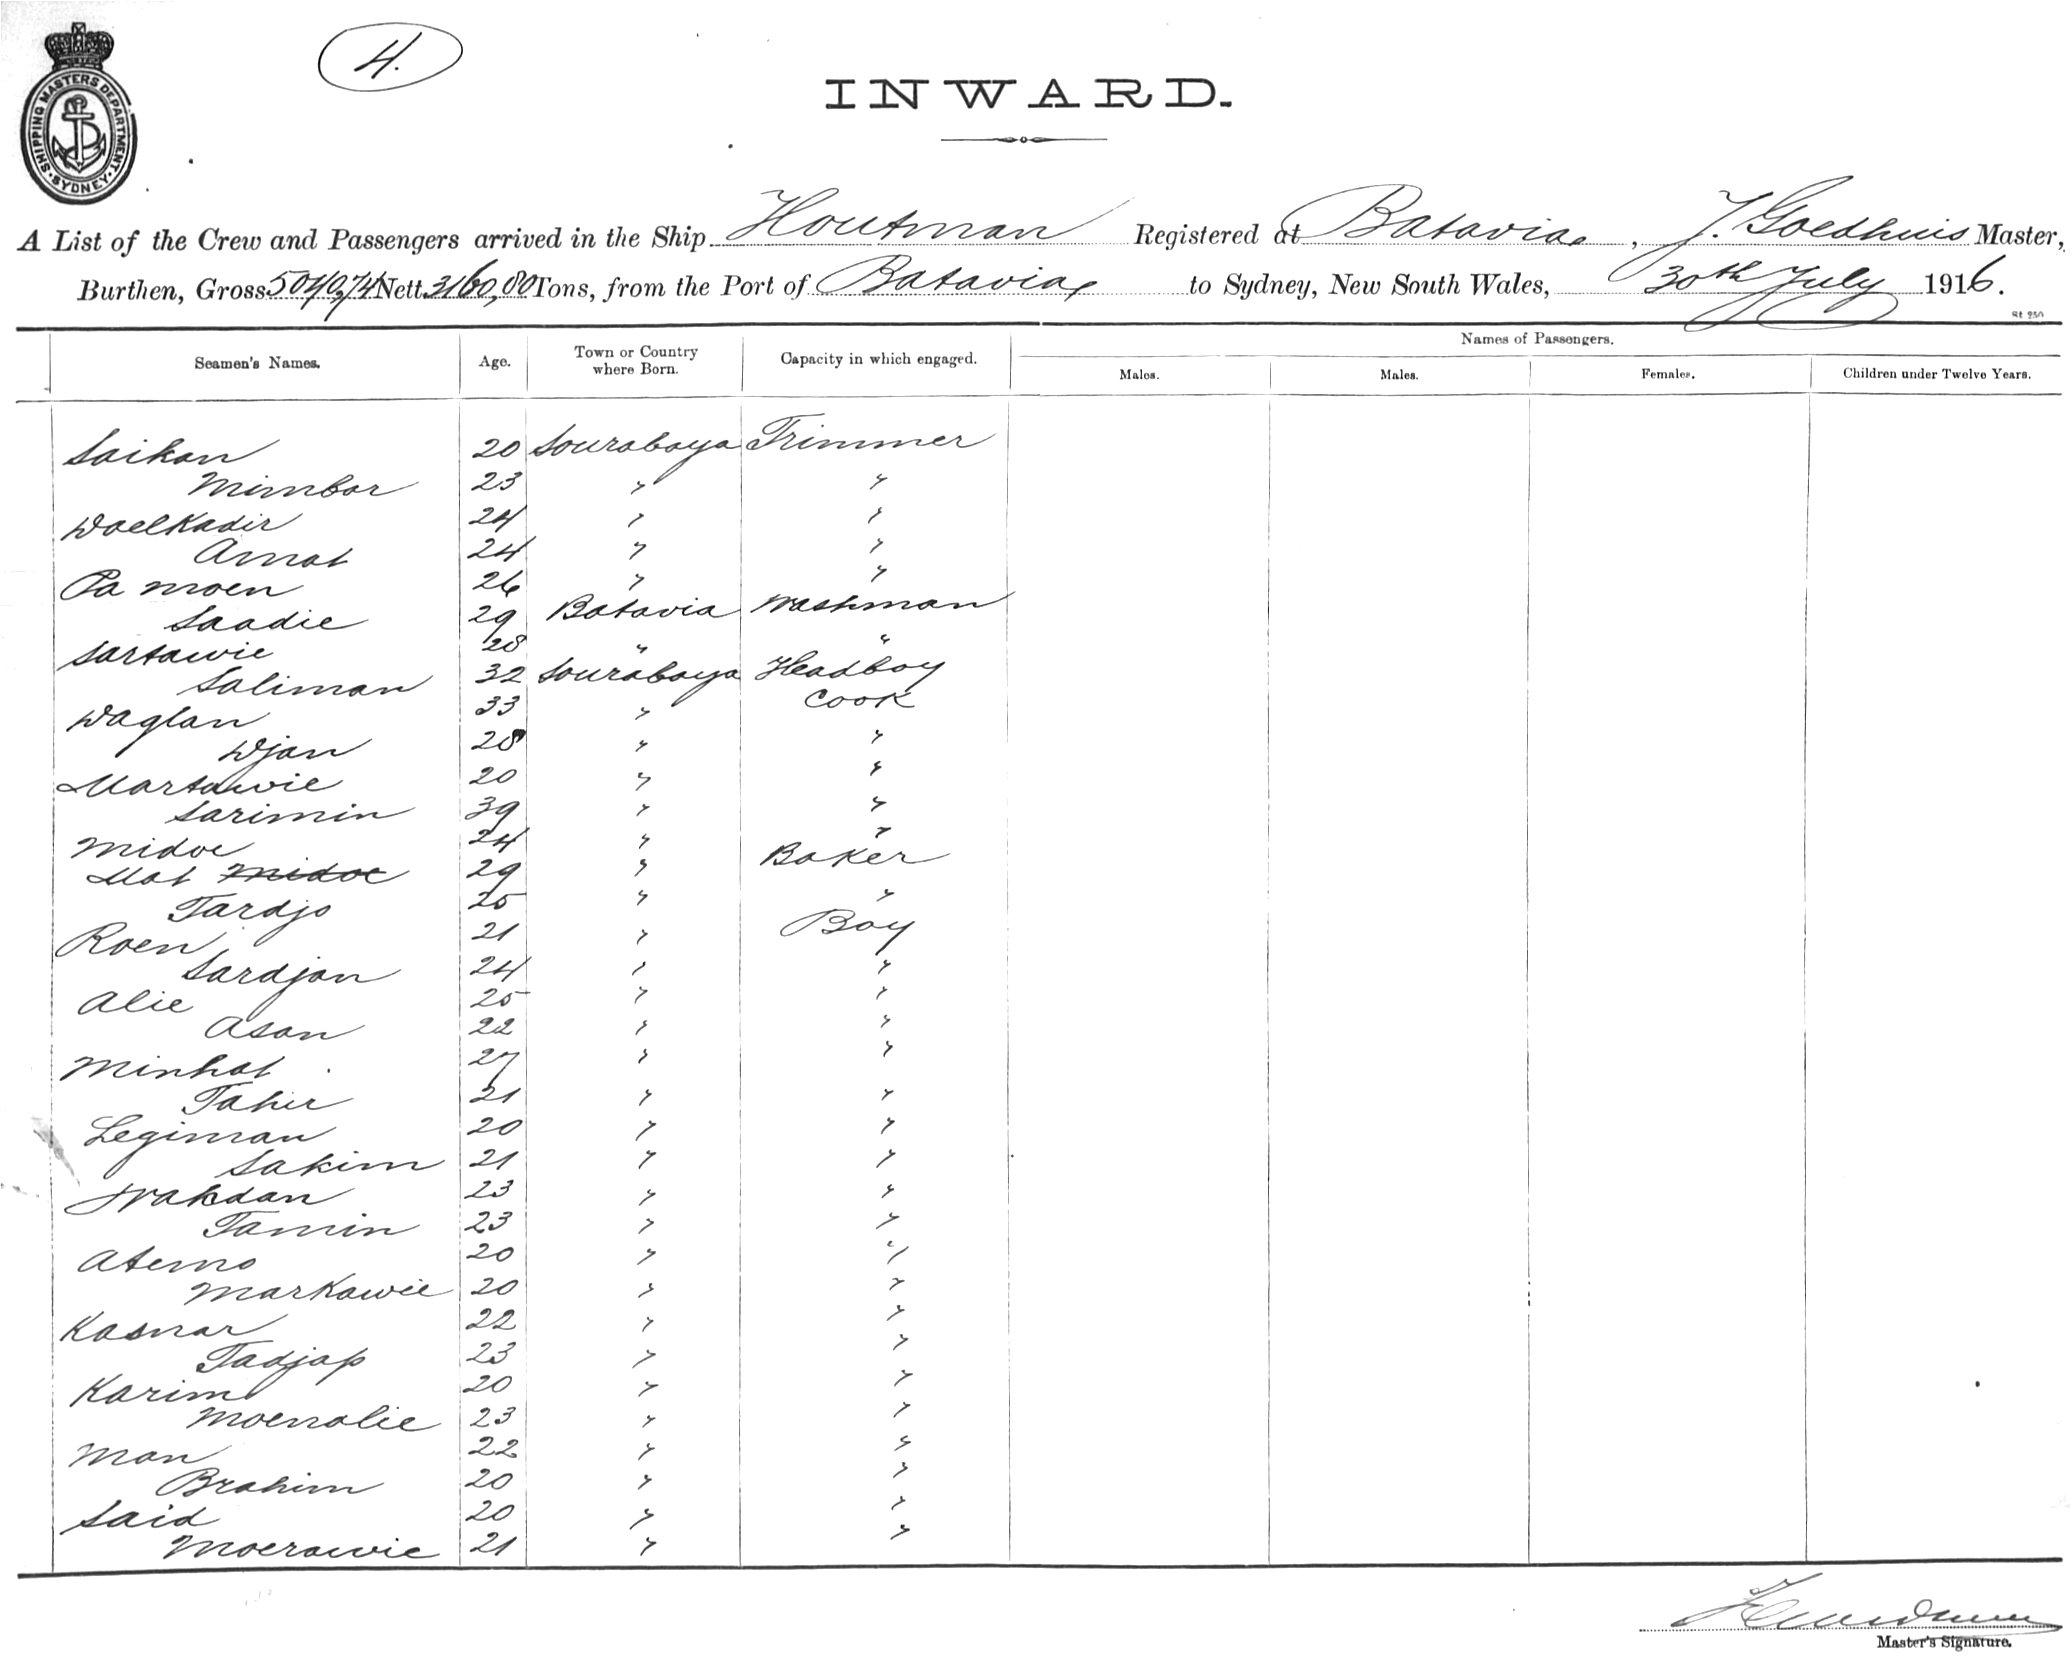 4.
SHIPPING MASTERS DEPARTMENT
SYDNEY
INWARD.
A List of the Crew and Passengers arrived in the Ship Houtman Registered at Batavia, J. Goedhuis Master,
Burthen, Gross 5040,74 Nett 3160,80 Tons, from the Port of Batavia, to Sydney, New South Wales, 30th July 1916.
St 250
Seamen's Names. Age. Town or Country where Born. Capacity in which engaged. Names of Passengers.
Males. Males. Females. Children under Twelve Years.
Saikan 20 Sourabaya Trimmer
Mimbar 23 " "
Doelkadir 24 " "
Amat 24 " "
Pa moen 26 " "
Saadie 29 Batavia Washman
Sartawie 28 " "
Saliman 32 Sourabaya Headboy
Waglan 33 " Cook
Djan 28 " "
Martawie 20 " "
Sarimin 39 " "
Midoe 24 " "
Mat Midoe 29 " Baker
Tardjo 25 " "
Roen 21 " Boy
Sardjan 24 " "
Alie 25 " "
Asan 22 " "
Minhat 27 " "
Tahir 21 " "
Legiman 20 " "
Sakim 21 " "
Wakdan 23 " "
Tamin 23 " "
Atemo 20 " "
Markawie 20 " "
Kasnar 22 " "
Tadjap 23 " "
Karim 20 " "
Moenalie 23 " "
Man 22 " "
Brahim 20 " "
Said 20 " "
Moerawie 21 " "
Master's Signature.